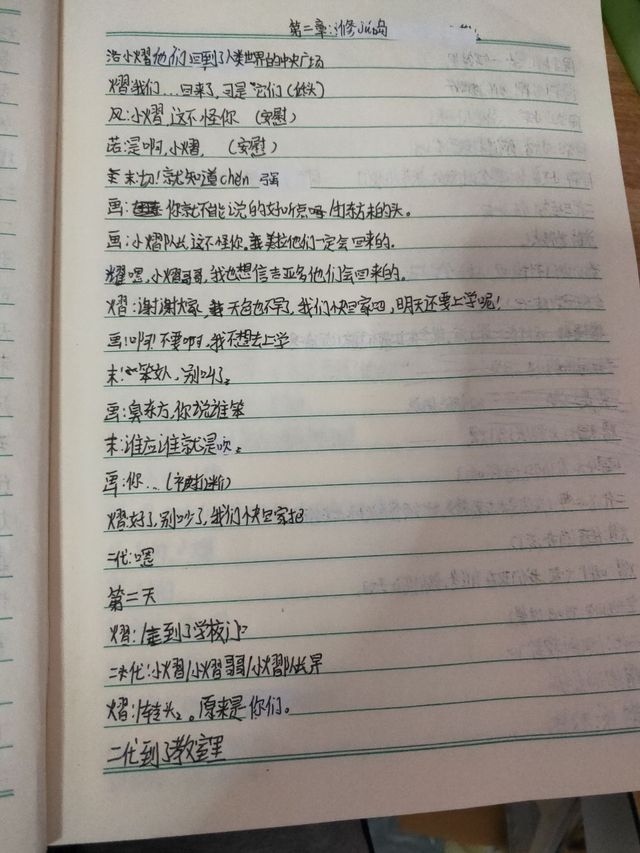 第二章:修jù岛
洛小熠他们回到了人类世界的中央广场
熠:我们…回来了,可是“它们(低头)
凡:小熠,这不怪你 (安慰)
诺:是啊,小熠, (安慰)
末:切!就知道chěn 强
画: 你就不能说的好听点吗 东方末的头。
画:小熠队长这不怪你,我美拉他们一定会回来的。
耀:嗯,小熠哥哥,我也想信吉亚多他们会回来的。
熠:谢谢大家,天色也不早了,我们快回家吧,明天还要上学呢!
画:啊!不要啊,我不想去上学
末:笨女人,别叫了。
画:臭东方,你说谁笨
末:谁应谁就是吹。
画:你…(被打断)
熠:好了,别吵了,我们快回家把
二代:嗯
第二天
熠:/走到了学校门口
二代:小熠/小熠哥哥/小熠队长早
熠:/转头。原来是你们。
二代到了教室里